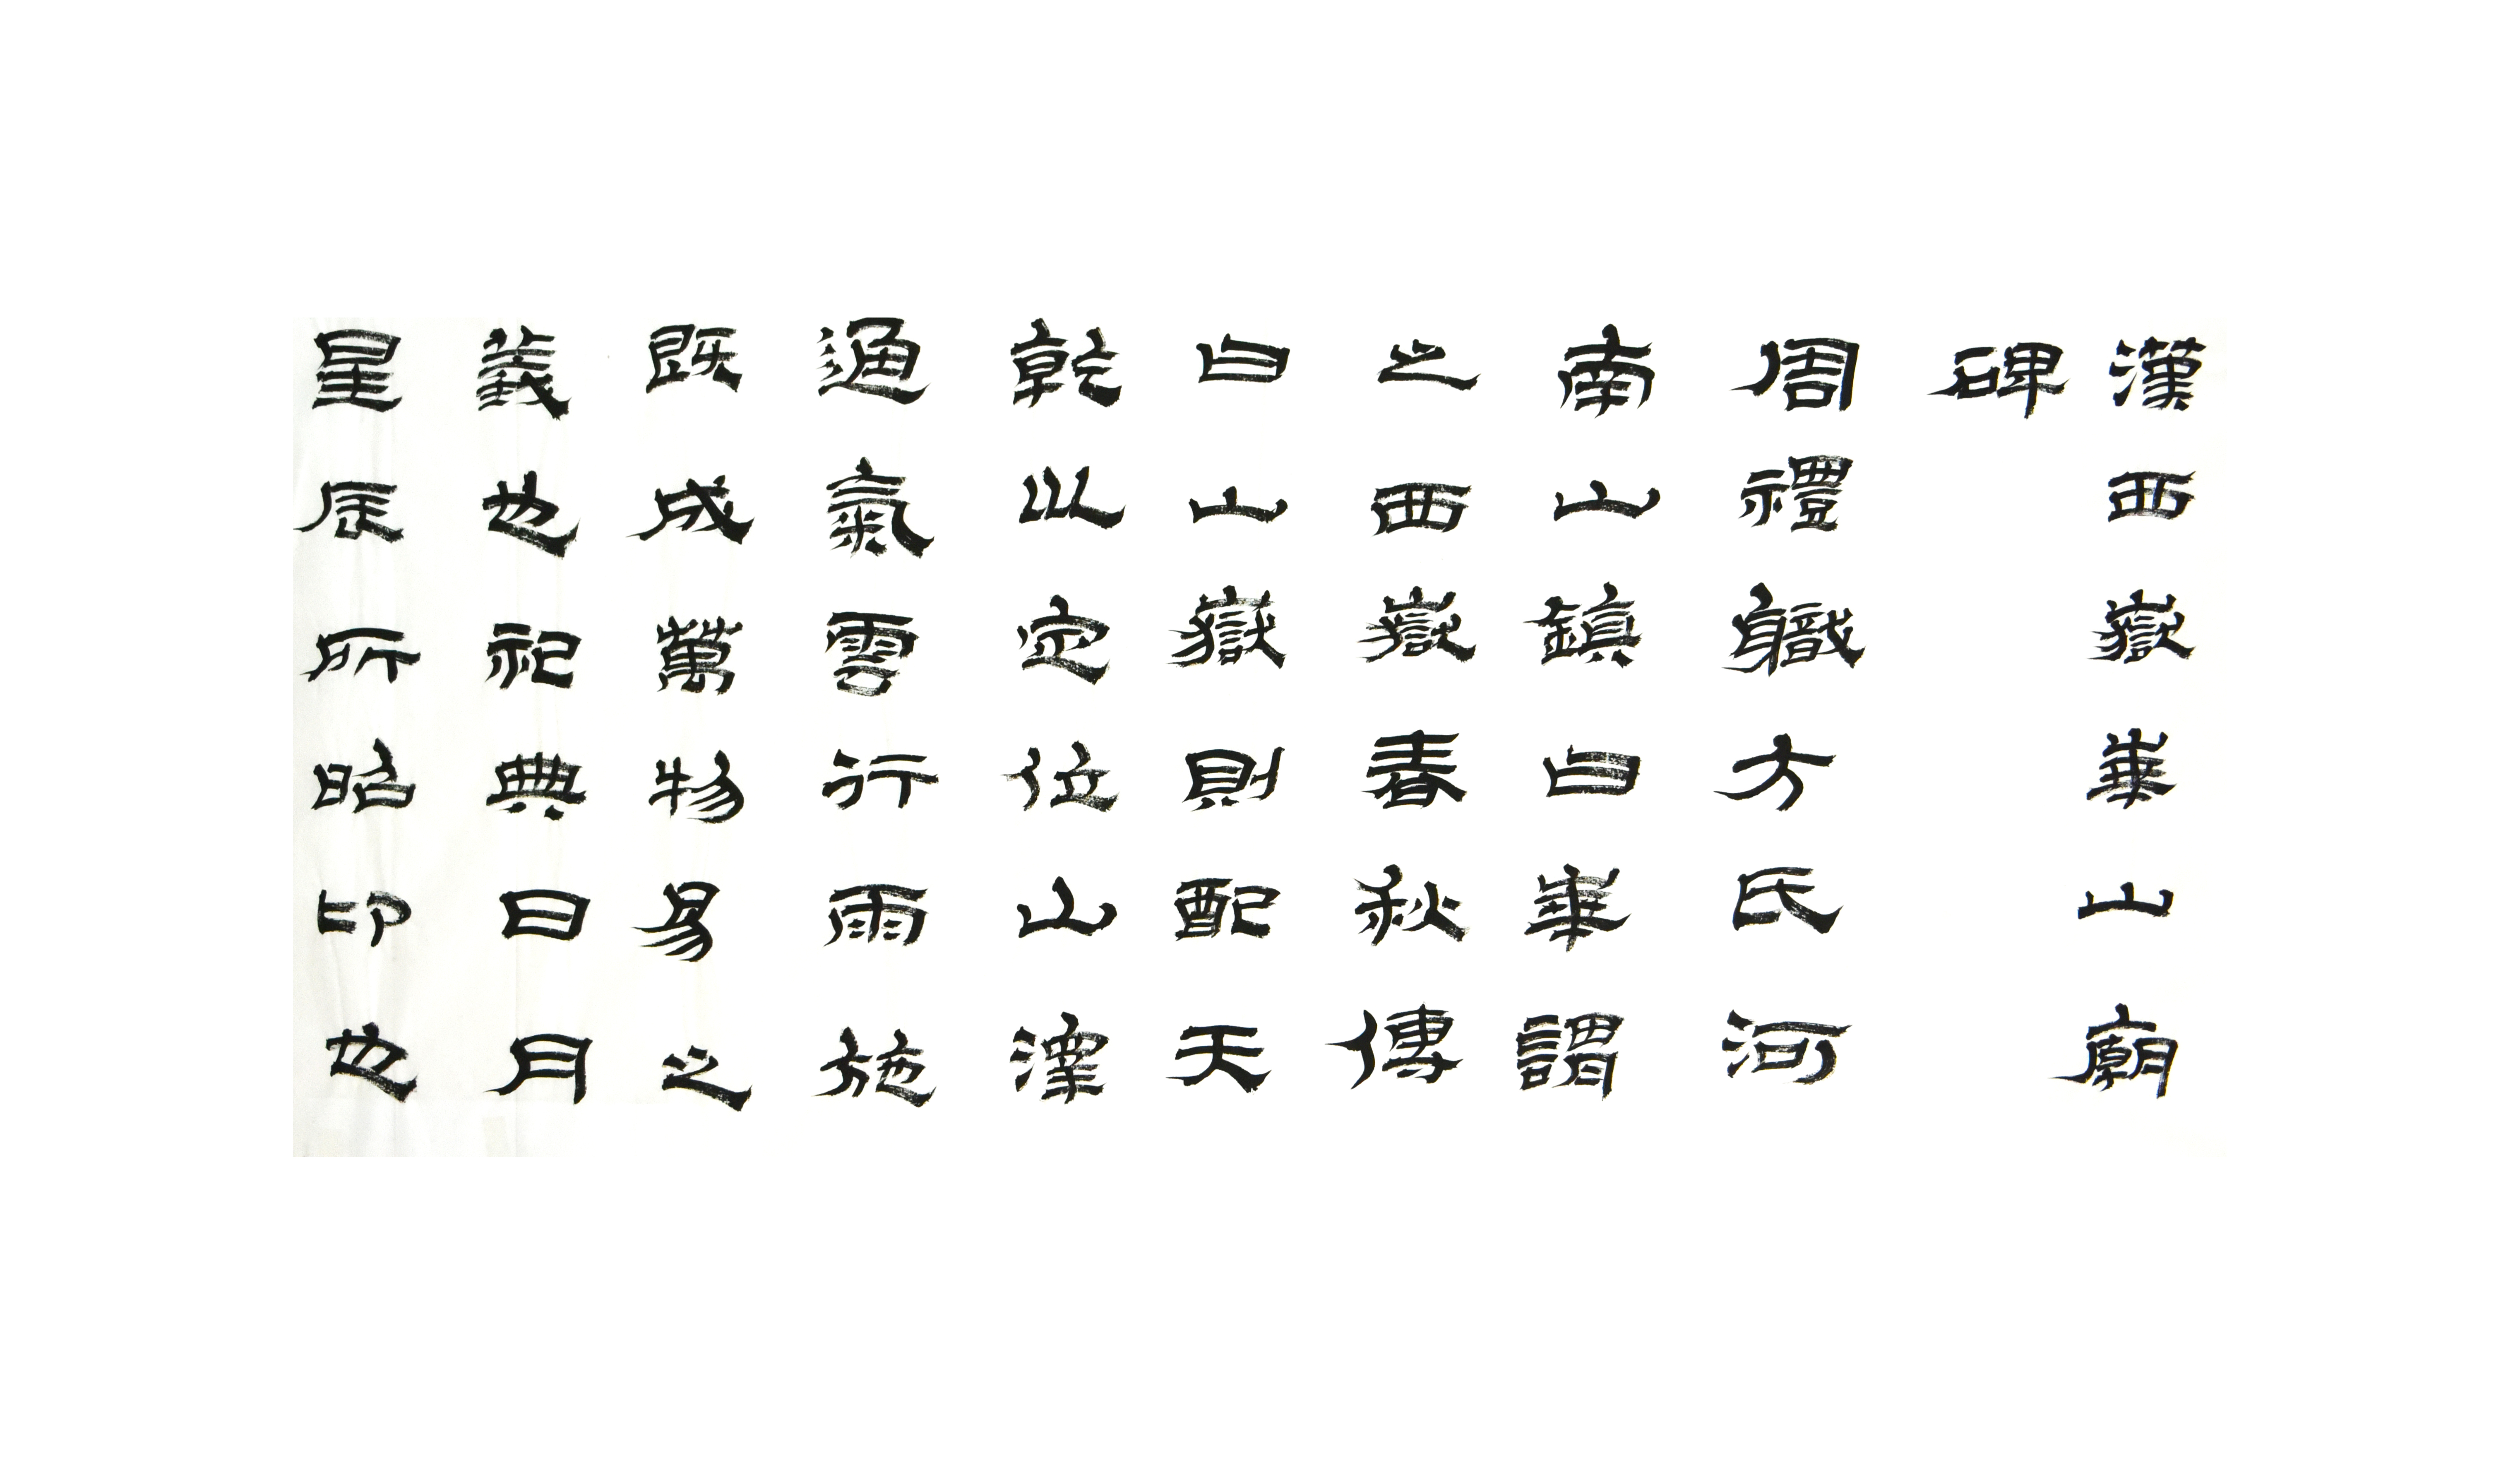 漢西嶽華山廟
碑
周禮軄方氏河
南山鎮曰華謂
之西嶽春秋傳
曰山嶽則配天
乾以定位山澤
通氣雲行雨施
既成萬物易之
義也祀典日月
星辰所昭卬也